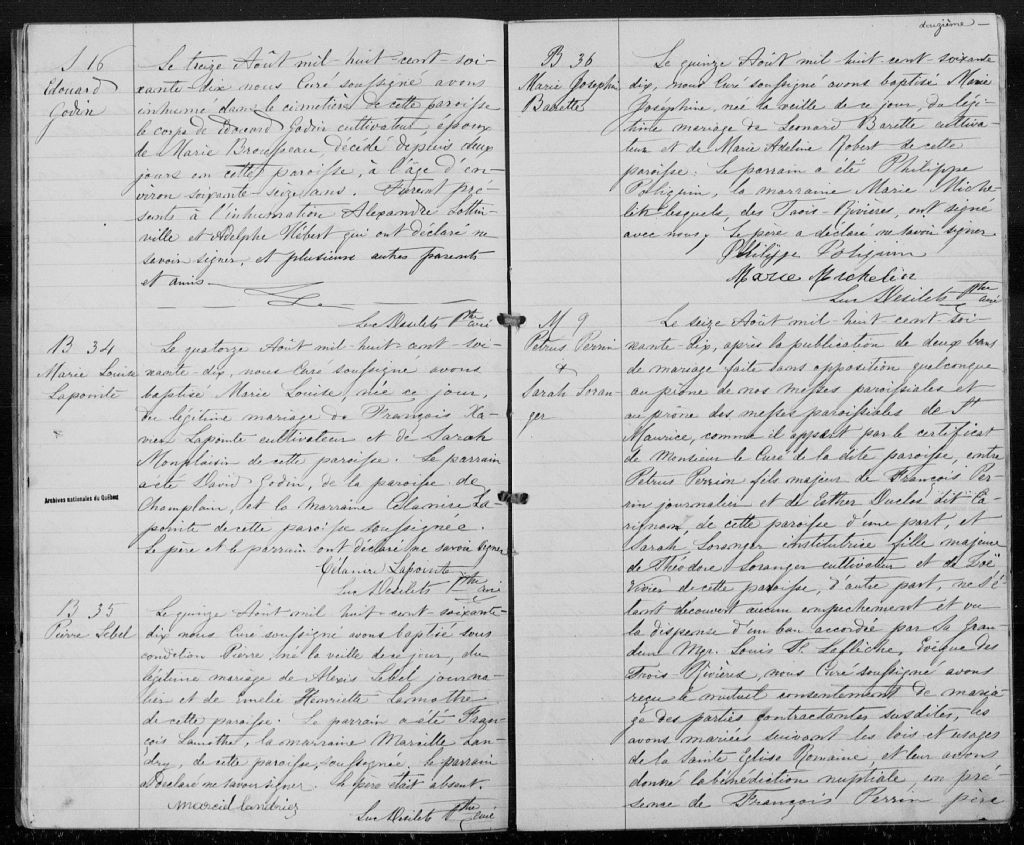 S 16
Edouard
Godin
Le treize Août mil-huit-cent-soi-
xante-dix nous Curé soussigné avons
inhumé dans le cimetière de cette paroisse
le corps de Edouard Godin cultivateur, époux
de Marie Brousseau, décédé depuis deux
jours en cette paroisse, à l'âge d'en-
viron soixante-seize ans. Furent pré-
sents à l'inhumation Alexandre Lottin-
ville et Adolphe Hébert qui ont déclaré ne
savoir signer, et plusieurs autres parents
et amis
Luc Desilets Ptre curé
B 34
Marie Louise
Lapointe
Le quatorze Août mil-huit-cent-soi-
xante-dix, nous Curé soussigné avons
baptisé Marie Louise, née ce jour,
du légitime mariage de François Xa-
vier Lapointe cultivateur et de Sarah
Monplaisir de cette paroisse. Le parrain
a été David Godin, de la paroisse de
Champlain, et la marraine Célanire La-
pointe de cette paroisse soussignée.
Le père et le parrain ont déclaré ne savoir signer
Célanire Lapointe
Luc Desilets Ptre curé
Archives nationales du Québec
B 35
Pierre Lebel
Le quinze Août mil-huit-cent-soixante-
dix nous Curé soussigné avons baptisé sous
condition Pierre, né la veille de ce jour, du
légitime mariage de Alexis Lebel journa-
lier et de Emelie Henriette Lamothe
de cette paroisse. Le parrain a été Fran-
çois Lamothe, la marraine Marcille Lan-
dry, de cette paroisse, soussignée. Le parrain
a déclaré ne savoir signer. Le père était absent.
Luc Desilets Ptre curé
deuxième
B 36
Marie Josephine
Barette
Le quinze Août mil-huit-cent-soixante
dix, nous Curé soussigné avons baptisé Marie
Josephine, née la veille de ce jour, du légi-
time mariage de Leonard Barette cultiva-
teur et de Marie Adeline Robert de cette
paroisse. Le parrain a été Philippe
Poliquin, la marraine Marie Miche-
lin lesquels, des Trois-Rivières, ont signé
avec nous. Le père a déclaré ne savoir signer
Philippe Poliquin
Marie Michelin
Luc Desilets Ptre curé
M 9
Petrus Perrin
&
Sarah Loran-
ger
Le seize Août mil-huit-cent-soi-
xante-dix, après la publication de deux bans
de mariage faite sans opposition quelconque
au prône de nos messes paroissiales et
au prône des messes paroissiales de St
Maurice, comme il appert par le certificat
de Monsieur le Curé de la dite paroisse, entre
Petrus Perrin fils majeur de François Per-
rin journalier et de Esther Duclos dit Ca-
rignan, de cette paroisse d'une part, et
Sarah Loranger institutrice fille majeure
de Théodore Loranger cultivateur et de Zoé
Vivier de cette paroisse, d'autre part, ne s'é-
tant découvert aucun empêchement et vu
la dispense d'un ban accordée par Sa Gran-
deur Mgr. Louis F. Laflèche, Evêque des
Trois Rivières, nous Curé soussigné avons
reçu le mutuel consentement de maria-
ge des parties contractantes susdites, les
avons mariées suivant les lois et usages
de la Sainte Eglise Romaine, et leur avons
donné la bénédiction nuptiale en pré-
sence de François Perrin père